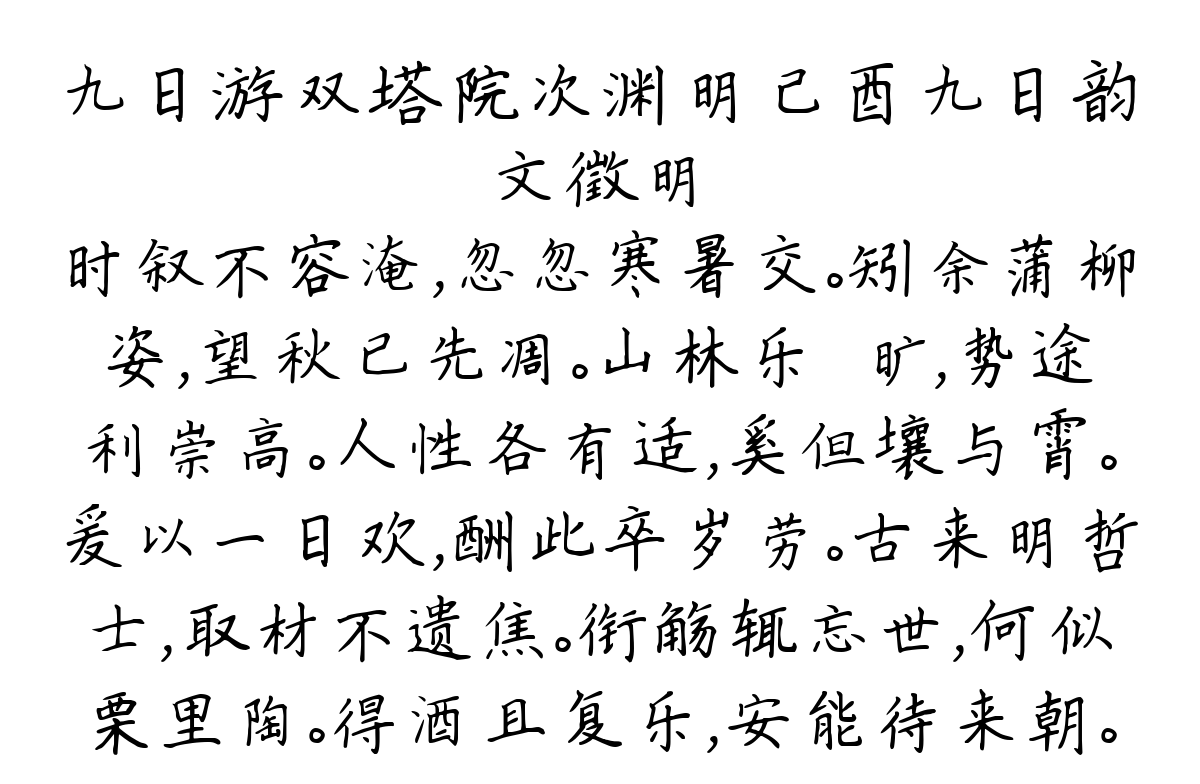 九日游双塔院次渊明己酉九日韵
文徵明
时叙不容淹,忽忽寒暑交。矧余蒲柳
姿,望秋已先凋。山林乐 旷,势途
利崇高。人性各有适,奚但壤与霄。
爰以一日欢,酬此卒岁劳。古来明哲
士,取材不遗焦。衔觞辄忘世,何似
栗里陶。得酒且复乐,安能待来朝。